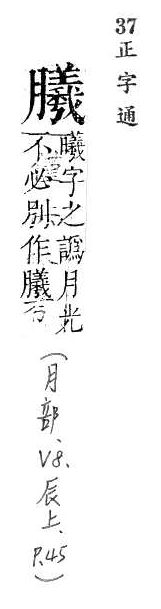 37正字通
䑂
曦字之譌月光
不必別作䑂
(月部、V8、辰上、P.45)